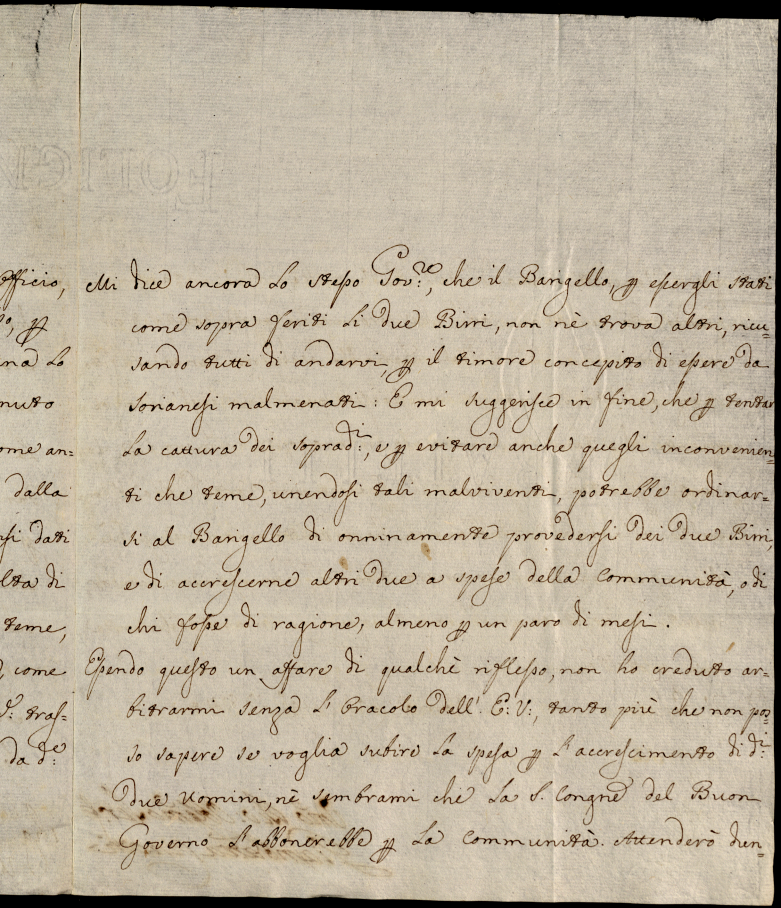 officio,
na Lo
nuto
ome an=
dalla
si dati
lta di
teme,
come
V: tras=
da d.e
Mi dice ancora Lo stesso Gov.re, che il Barigello, p essergli stati
come sopra feriti Li due Birri, non nè trova altri, ricu=
sando tutti di andarvi, p il timore concepito di essere da
Sorianesi malmenati: E mi suggerisce in fine, che p tentar
La cattura dei soprad.ti, e p evitare anche quegli inconvenien=
ti che teme, unendosi tali malviventi, potrebbe ordinar=
si al Barigello di onninamente provedersi dei due Birri,
e di accrescerne altri due a spese della Communità, o di
chi fosse di ragione, almeno p un paro di mesi.
Essendo questo un affare di qualchè riflesso, non ho creduto ar=
bitrarmi senza L'Oracolo dell'E: V:, tanto più che non pos=
so sapere se voglia subire La spesa p L'accrescimento di d.i
due Uomini, nè sembrami che La S. Congne del Buon
Governo L'abbonerebbe p La Communità. Attenderò dun=